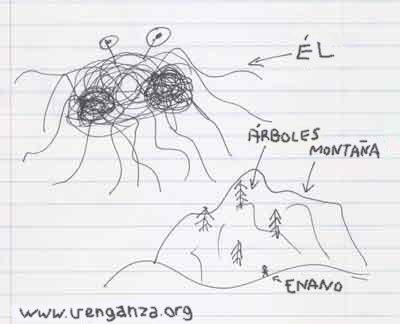 ÉL
ÁRBOLES
MONTAÑA
ENANO
www.venganza.org